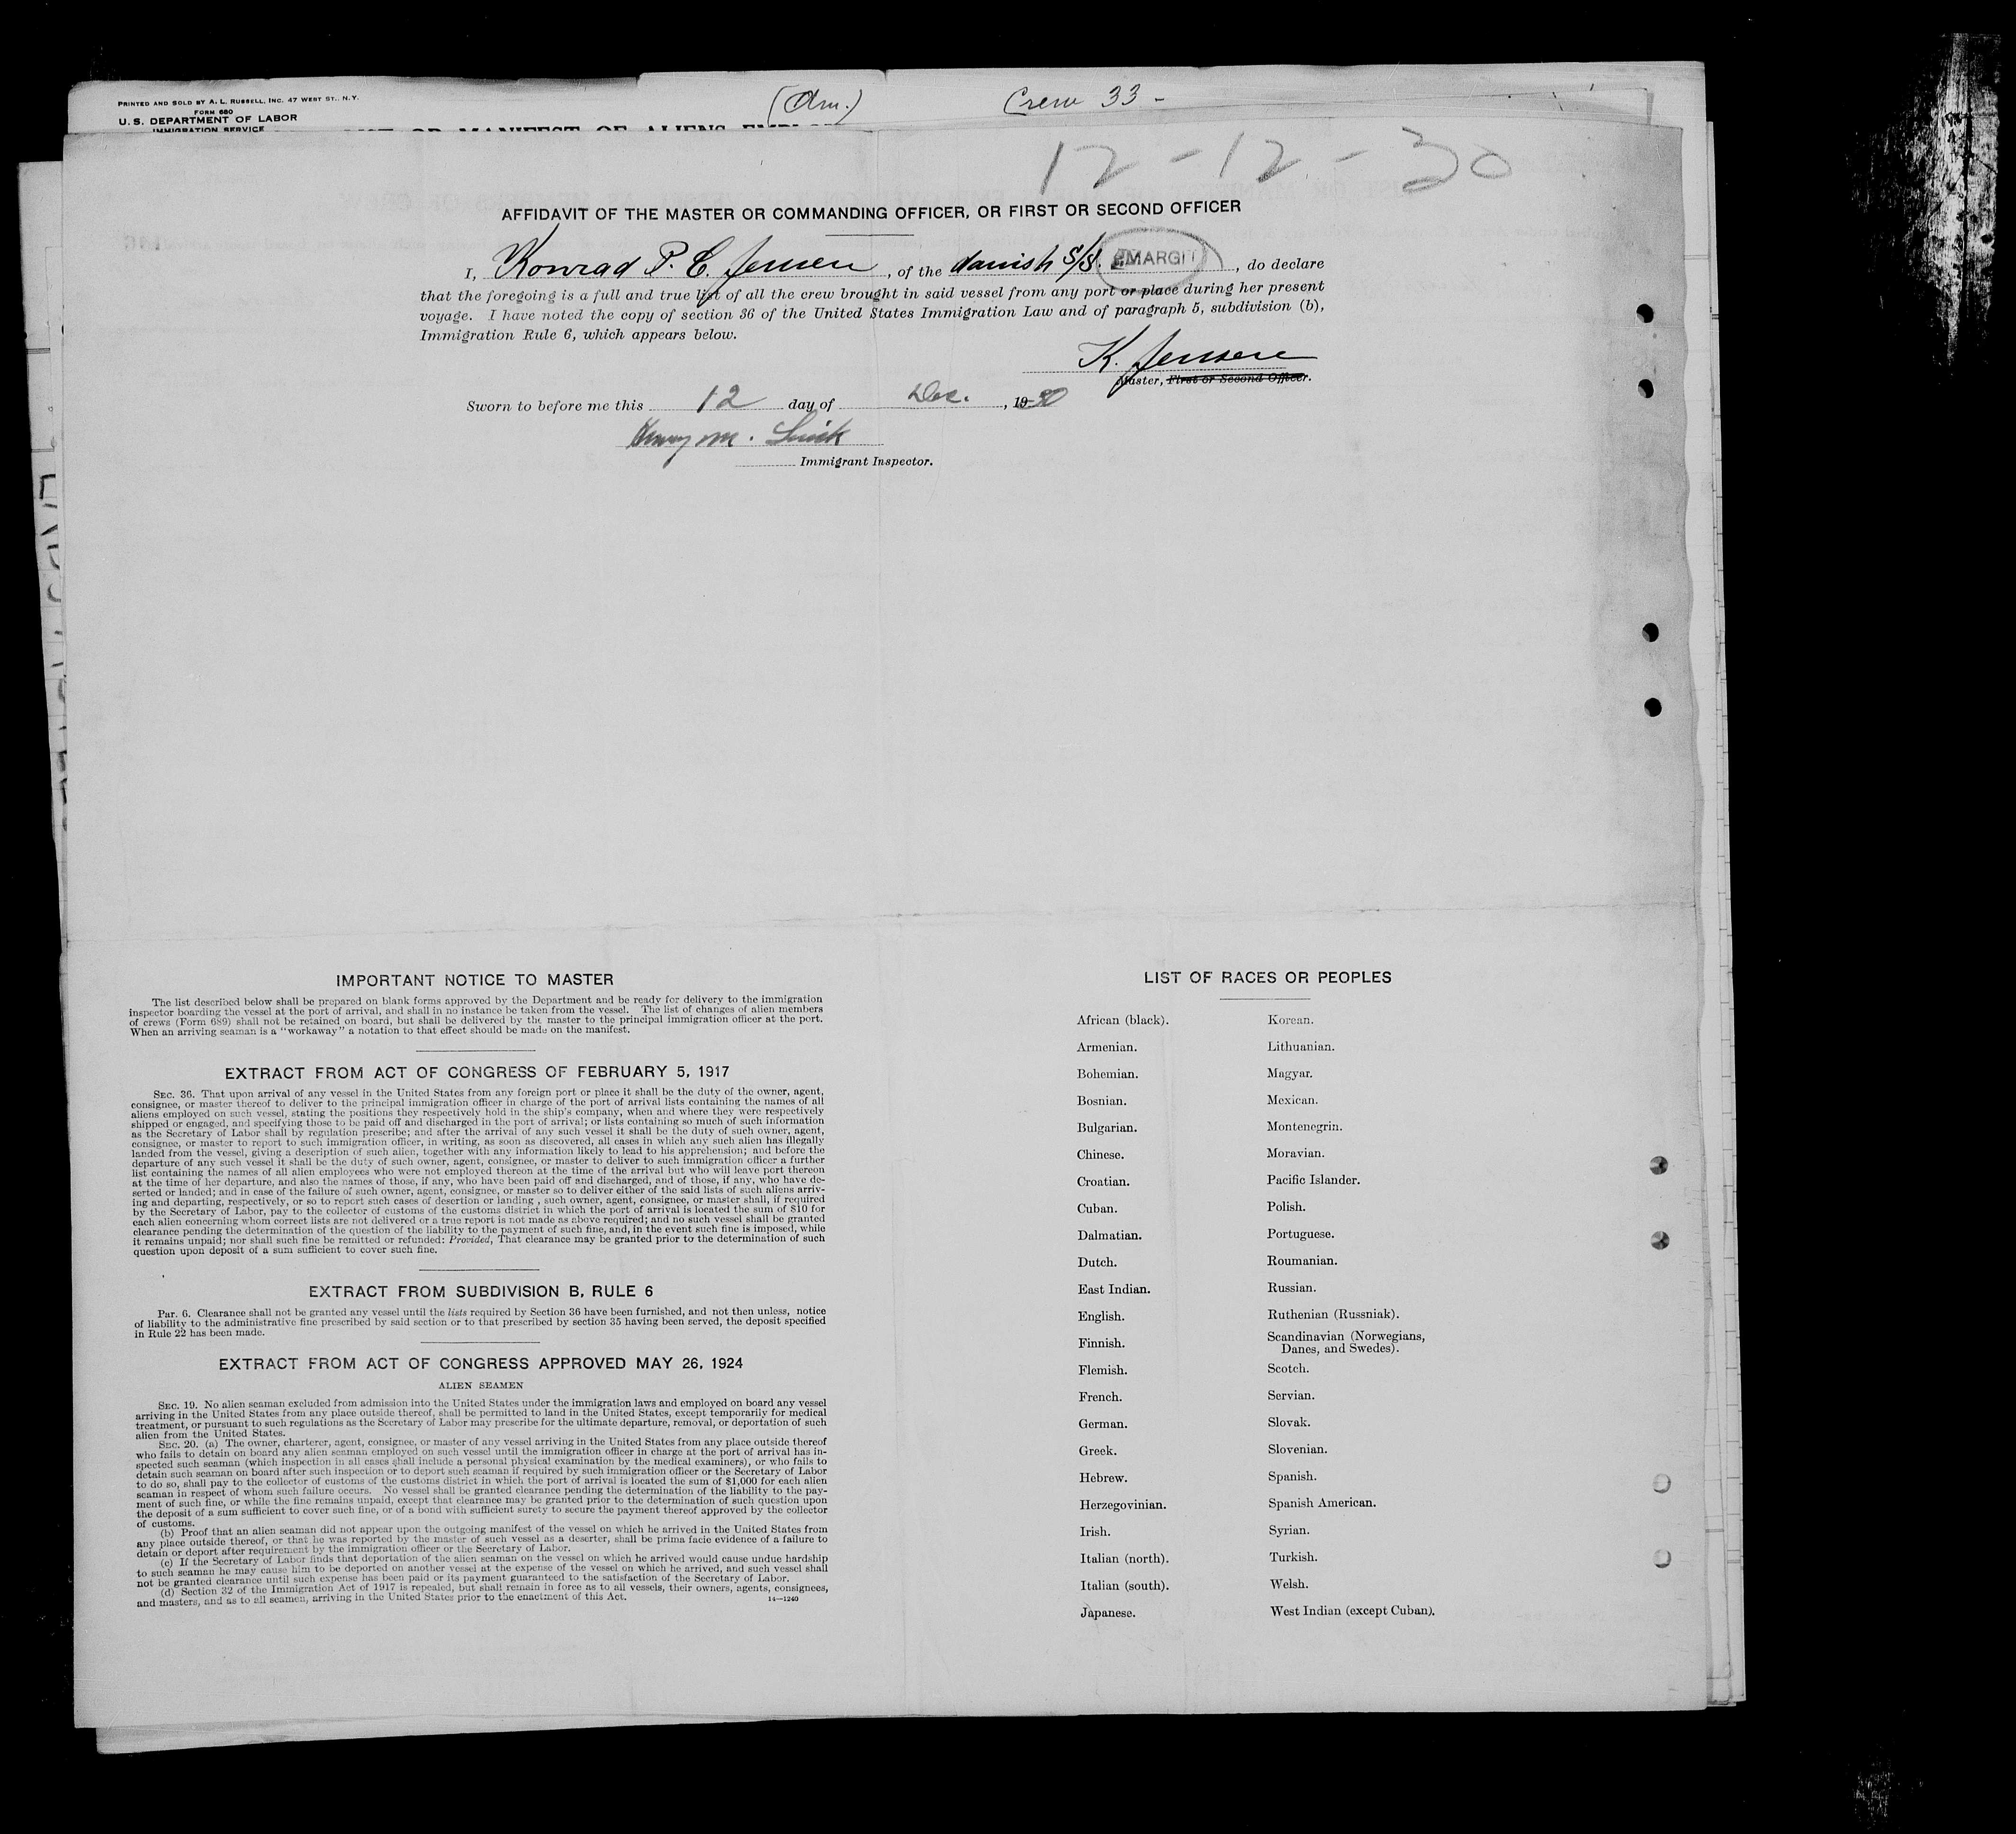 PRINTED AND SOLD BY A. L. RUSSELL, INC. 47 WEST ST., N.Y.
FORM 680
U. S. DEPARTMENT OF LABOR
IMMIGRATION SERVICE
Crew 33 -
12-12-30
AFFIDAVIT OF THE MASTER OR COMMANDING OFFICER, OR FIRST OR SECOND OFFICER
I, Konrad P. C. Jensen, of the danish S/S. MARGIT, do declare
that the foregoing is a full and true list of all the crew brought in said vessel from any port or place during her present
voyage. I have noted the copy of section 36 of the United States Immigration Law and of paragraph 5, subdivision (b),
Immigration Rule 6, which appears below.
K. Jensen
Master, First or Second Officer.
Sworn to before me this 12 day of Dec., 1930
Immigrant Inspector.
IMPORTANT NOTICE TO MASTER
The list described below shall be prepared on blank forms approved by the Department and be ready for delivery to the immigration
inspector boarding the vessel at the port of arrival, and shall in no instance be taken from the vessel. The list of changes of alien members
of crews (Form 689) shall not be retained on board, but shall be delivered by the master to the principal immigration officer at the port.
When an arriving seaman is a "workaway" a notation to that effect should be made on the manifest.
EXTRACT FROM ACT OF CONGRESS OF FEBRUARY 5, 1917
SEC. 36. That upon arrival of any vessel in the United States from any foreign port or place it shall be the duty of the owner, agent,
consignee, or master thereof to deliver to the principal immigration officer in charge of the port of arrival lists containing the names of all
aliens employed on such vessel, stating the positions they respectively hold in the ship's company, when and where they were respectively
shipped or engaged, and specifying those to be paid off and discharged in the port of arrival; or lists containing so much of such information
as the Secretary of Labor shall by regulation prescribe; and after the arrival of any such vessel it shall be the duty of such owner, agent,
consignee, or master to report to such immigration officer, in writing, as soon as discovered, all cases in which any such alien has illegally
landed from the vessel, giving a description of such alien, together with any information likely to lead to his apprehension; and before the
departure of any such vessel it shall be the duty of such owner, agent, consignee, or master to deliver to such immigration officer a further
list containing the names of all alien employees who were not employed thereon at the time of the arrival but who will leave port thereon
at the time of her departure, and also the names of those, if any, who have been paid off and discharged, and of those, if any, who have de-
serted or landed; and in case of the failure of such owner, agent, consignee, or master so to deliver either of the said lists of such aliens arriv-
ing and departing, respectively, or so to report such cases of desertion or landing , such owner, agent, consignee, or master shall, if required
by the Secretary of Labor, pay to the collector of customs of the customs district in which the port of arrival is located the sum of $10 for
each alien concerning whom correct lists are not delivered or a true report is not made as above required; and no such vessel shall be granted
clearance pending the determination of the question of the liability to the payment of such fine, and, in the event such fine is imposed, while
it remains unpaid; nor shall such fine be remitted or refunded: Provided, That clearance may be granted prior to the determination of such
question upon deposit of a sum sufficient to cover such fine.
EXTRACT FROM SUBDIVISION B, RULE 6
Par. 6. Clearance shall not be granted any vessel until the lists required by Section 36 have been furnished, and not then unless, notice
of liability to the administrative fine prescribed by said section or to that prescribed by section 35 having been served, the deposit specified
in Rule 22 has been made.
EXTRACT FROM ACT OF CONGRESS APPROVED MAY 26, 1924
ALIEN SEAMEN
SEC. 19. No alien seaman excluded from admission into the United States under the immigration laws and employed on board any vessel
arriving in the United States from any place outside thereof, shall be permitted to land in the United States, except temporarily for medical
treatment, or pursuant to such regulations as the Secretary of Labor may prescribe for the ultimate departure, removal, or deportation of such
alien from the United States.
SEC. 20. (a) The owner, charterer, agent, consignee, or master of any vessel arriving in the United States from any place outside thereof
who fails to detain on board any alien seaman employed on such vessel until the immigration officer in charge at the port of arrival has in-
spected such seaman (which inspection in all cases shall include a personal physical examination by the medical examiners), or who fails to
detain such seaman on board after such inspection or to deport such seaman if required by such immigration officer or the Secretary of Labor
to do so, shall pay to the collector of customs of the customs district in which the port of arrival is located the sum of $1,000 for each alien
seaman in respect of whom such failure occurs. No vessel shall be granted clearance pending the determination of the liability to the pay-
ment of such fine, or while the fine remains unpaid, except that clearance may be granted prior to the determination of such question upon
the deposit of a sum sufficient to cover such fine, or of a bond with sufficient surety to secure the payment thereof approved by the collector
of customs.
(b) Proof that an alien seaman did not appear upon the outgoing manifest of the vessel on which he arrived in the United States from
any place outside thereof, or that he was reported by the master of such vessel as a deserter, shall be prima facie evidence of a failure to
detain or deport after requirement by the immigration officer or the Secretary of Labor.
(c) If the Secretary of Labor finds that deportation of the alien seaman on the vessel on which he arrived would cause undue hardship
to such seaman he may cause him to be deported on another vessel at the expense of the vessel on which he arrived, and such vessel shall
not be granted clearance until such expense has been paid or its payment guaranteed to the satisfaction of the Secretary of Labor.
(d) Section 32 of the Immigration Act of 1917 is repealed, but shall remain in force as to all vessels, their owners, agents, consignees,
and masters, and as to all seamen, arriving in the United States prior to the enactment of this Act.
14—1240
LIST OF RACES OR PEOPLES
African (black).
Armenian.
Bohemian.
Bosnian.
Bulgarian.
Chinese.
Croatian.
Cuban.
Dalmatian.
Dutch.
East Indian.
English.
Finnish.
Flemish.
French.
German.
Greek.
Hebrew.
Herzegovinian.
Irish.
Italian (north).
Italian (south).
Japanese.
Korean.
Lithuanian.
Magyar.
Mexican.
Montenegrin.
Moravian.
Pacific Islander.
Polish.
Portuguese.
Roumanian.
Russian.
Ruthenian (Russniak).
Scandinavian (Norwegians,
Danes, and Swedes).
Scotch.
Servian.
Slovak.
Slovenian.
Spanish.
Spanish American.
Syrian.
Turkish.
Welsh.
West Indian (except Cuban).